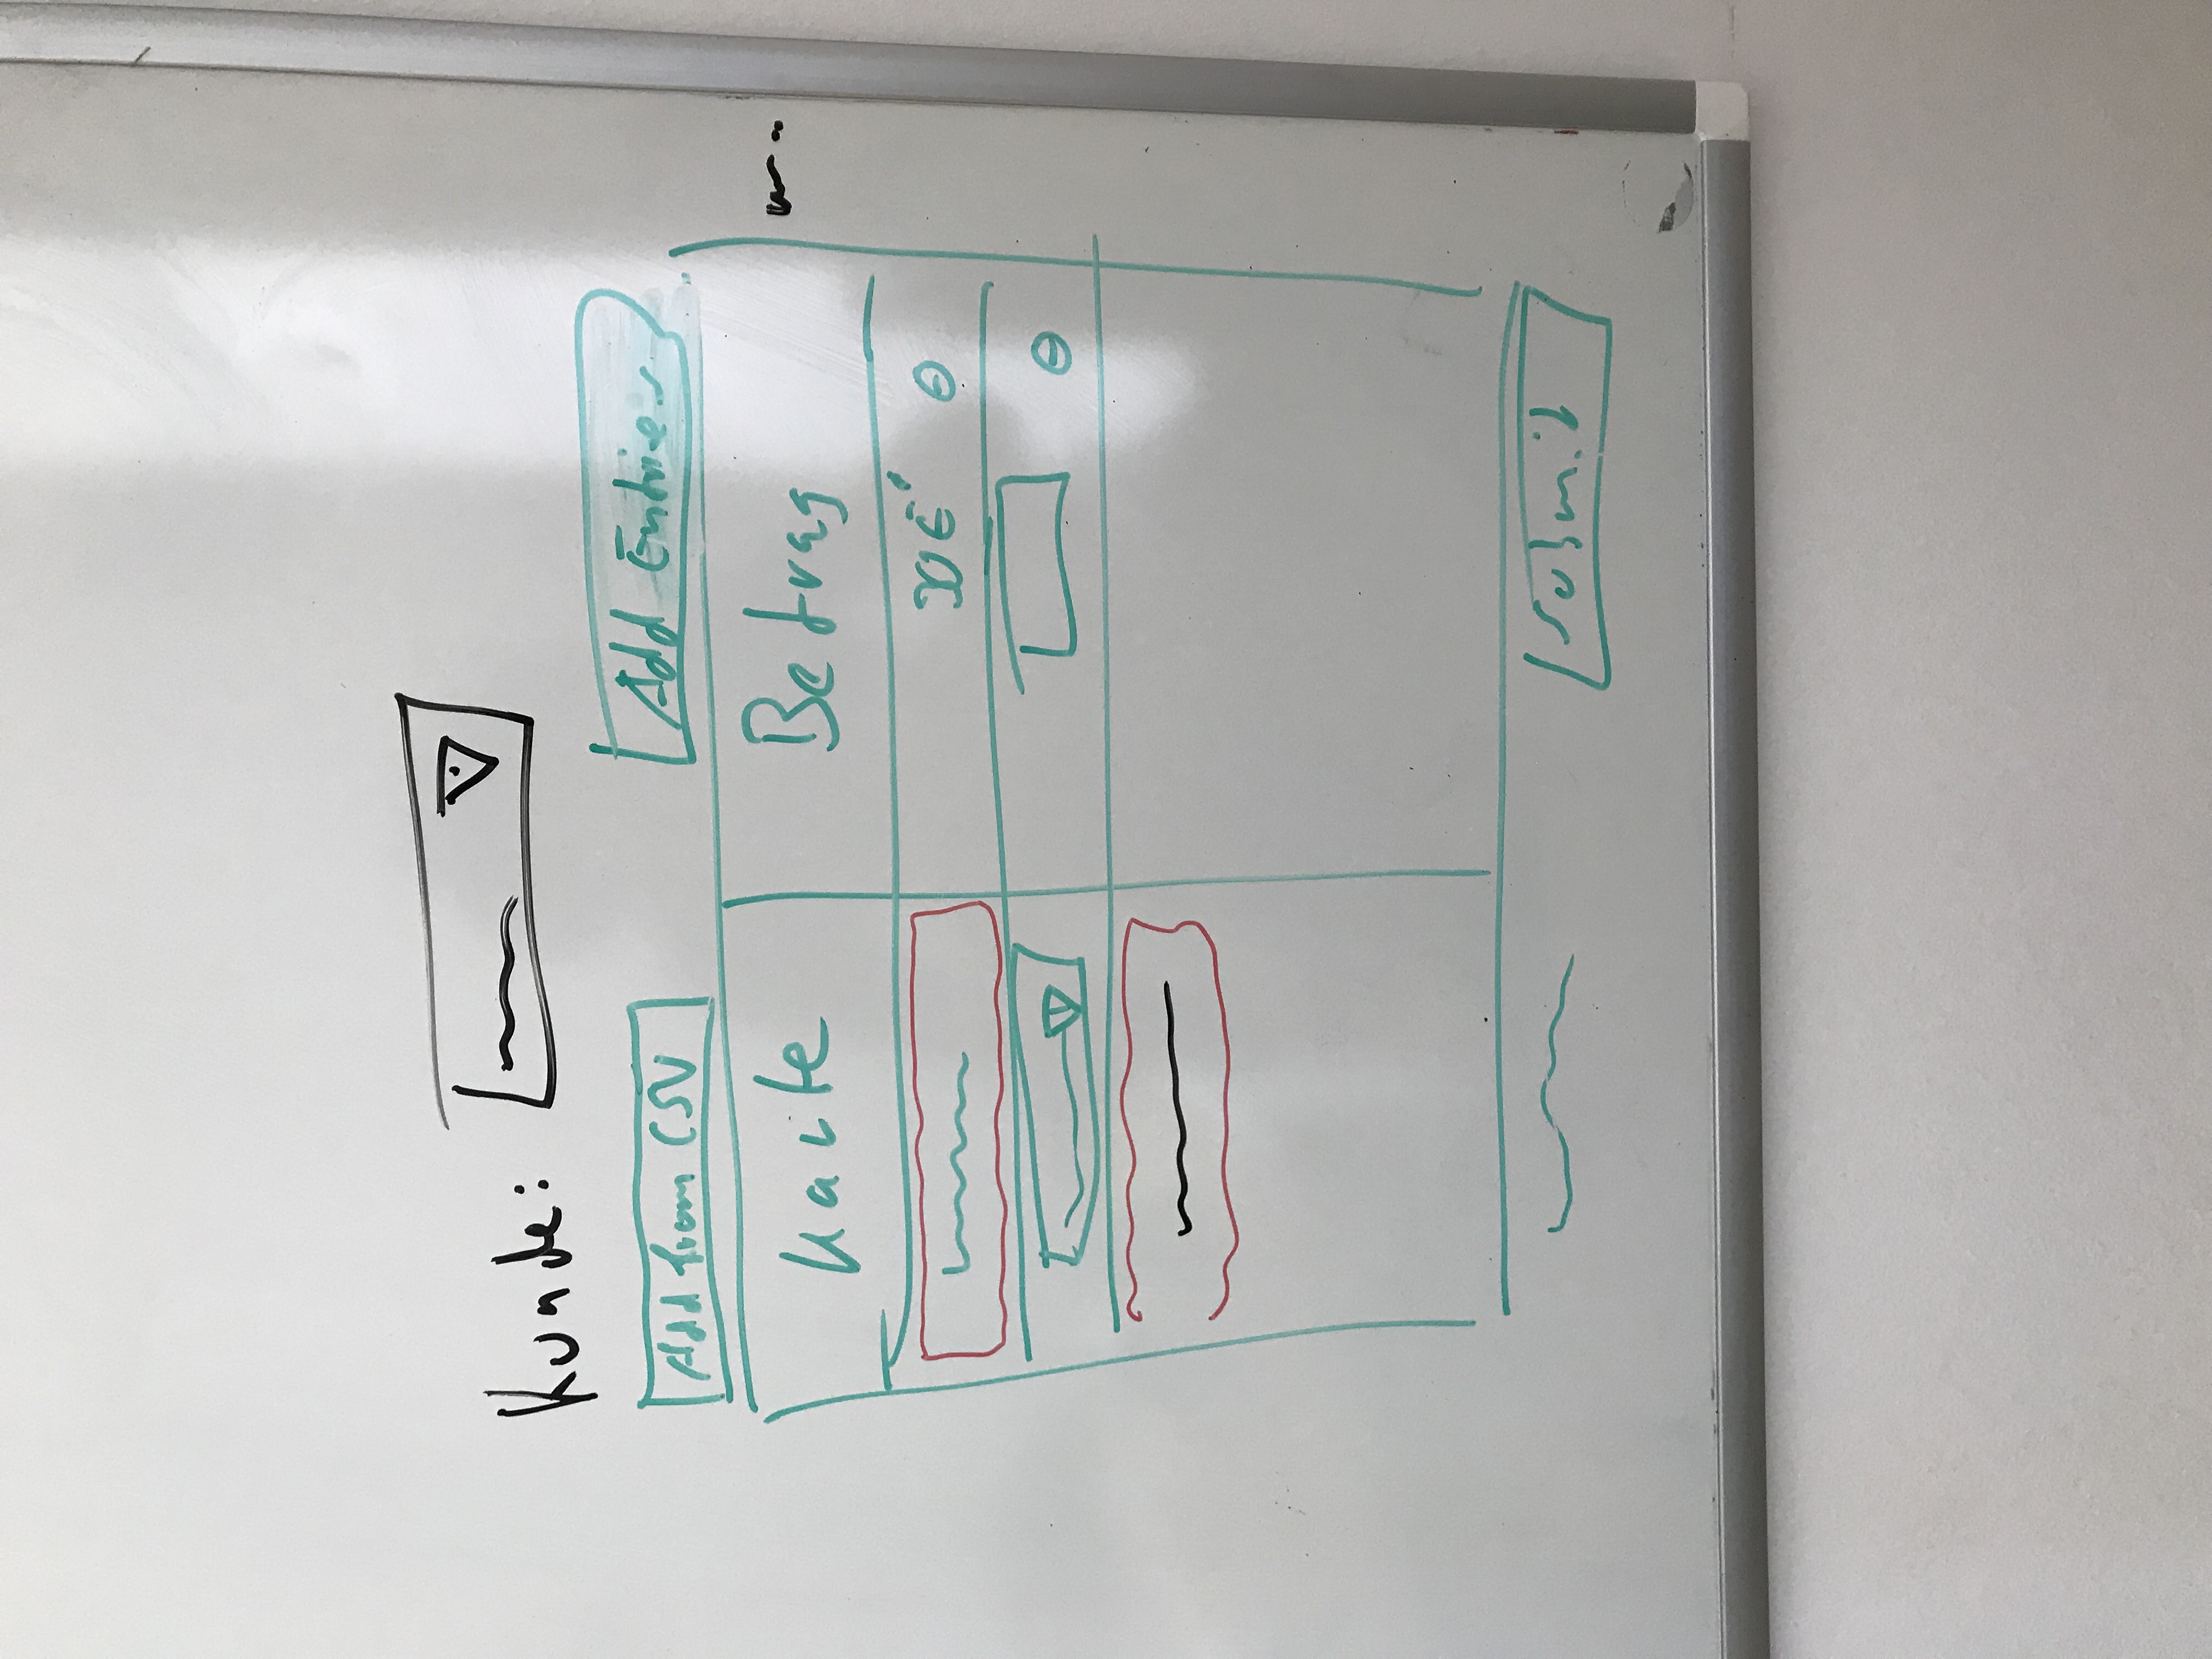 Kunde:
Add from CSV
Add Entries
Karte
Betrag
Submit